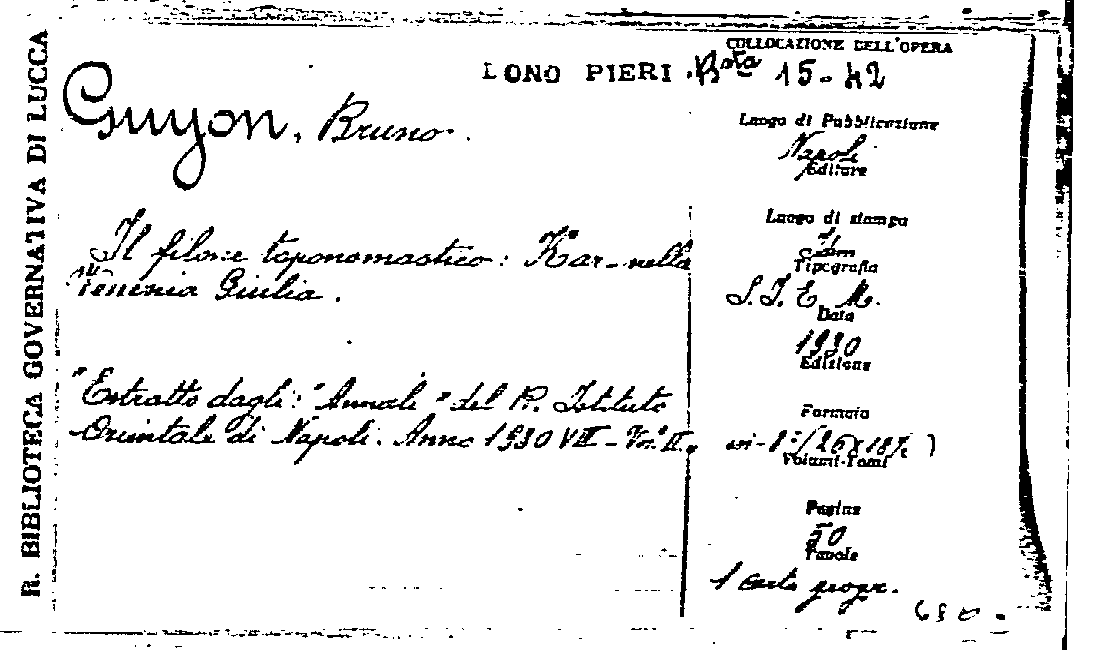 R. BIBLIOTECA GOVERNATIVA DI LUCCA
COLLOCAZIONE DELL'OPERA
DONO PIERI Bta 15-42
Guyon, Bruno.
Luogo di Pubblicazione
Napoli
Editore
Il filone toponomastico: Kar- nella
Venezia Giulia.
Luogo di stampa
Tipografia
S.I.E.M.
Data
1930
Edizione
"Estratto dagli: "Annali" del R. Istituto
Orientale di Napoli. Anno 1930 VIII - Vol. II.
Formato
in-8°
Volumi-Tomi
Pagine
50
Tavole
1 carta